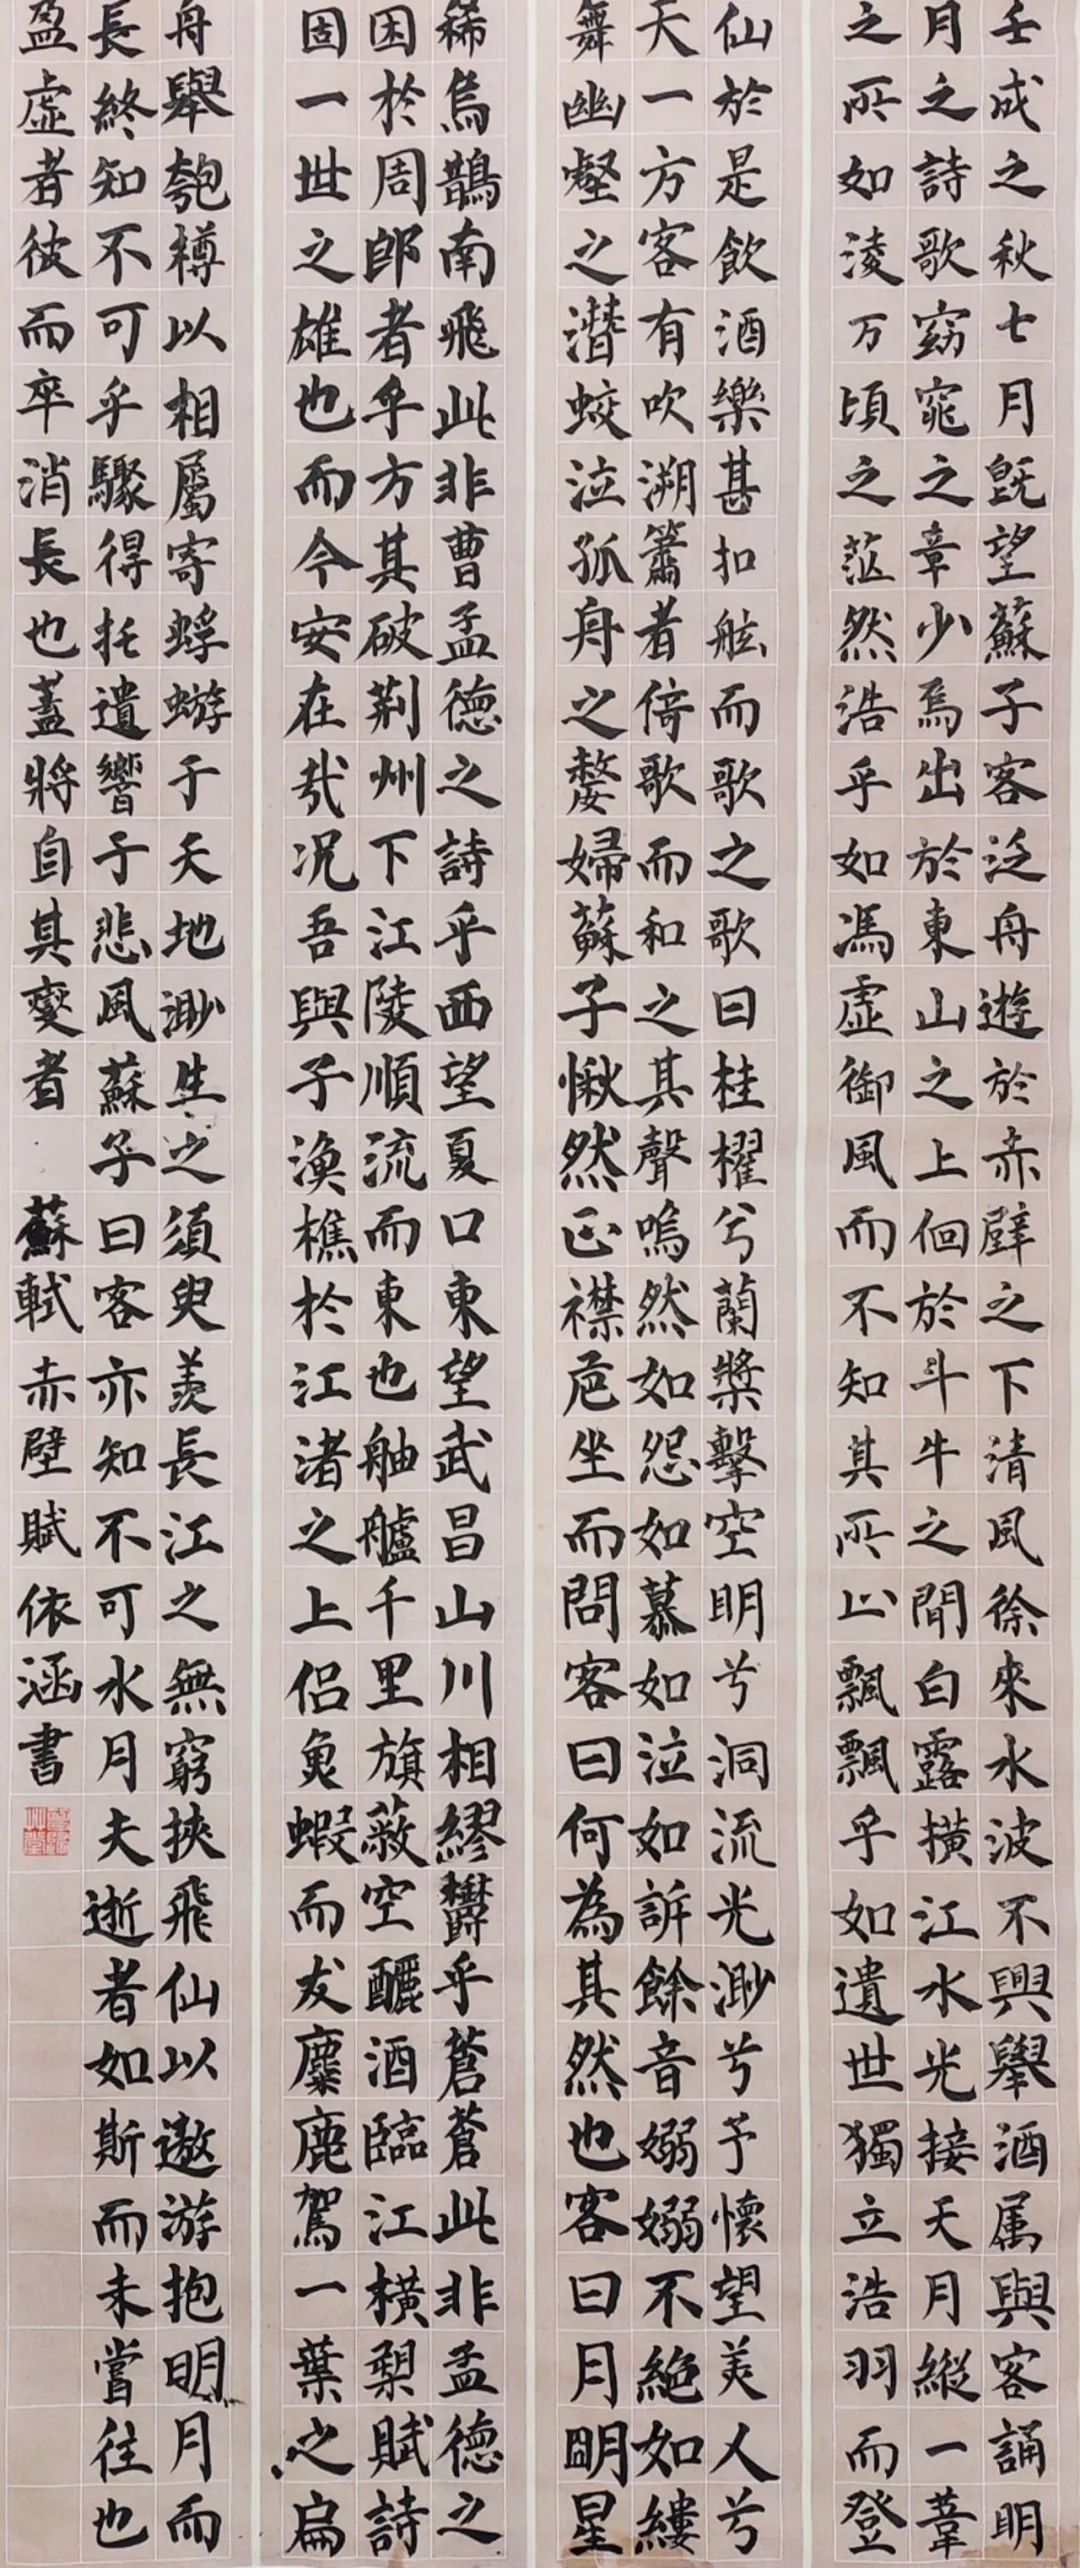 壬戌之秋七月既望蘇子客泛舟遊於赤壁之下清風徐來水波不興舉酒属與客誦明
月之詩歌窈窕之章少焉出於東山之上佪於斗牛之間白露橫江水光接天月縱一葦
之所如淩万頃之茫然浩乎如馮虛御風而不知其所止飄飄乎如遺世獨立浩羽而登
仙於是飲酒樂甚扣舷而歌之歌曰桂櫂兮蘭槳擊空明兮洞流光渺兮予懷望美人兮
天一方客有吹溯簫者倚歌而和之其聲嗚然如怨如慕如泣如訴餘音嫋嫋不絕如縷
舞幽壑之潛蛟泣孤舟之嫠婦蘇子愀然正襟危坐而問客曰何為其然也客曰月明星
稀烏鵲南飛此非曹孟德之詩乎西望夏口東望武昌山川相繆鬱乎蒼蒼此非孟德之
困於周郎者乎方其破荆州下江陵順流而東也舳艫千里旗蔽空釃酒臨江橫槊賦詩
固一世之雄也而今安在哉況吾與子漁樵於江渚之上侣魚蝦而友麋鹿駕一葉之扁
舟舉匏樽以相屬寄蜉蝣于天地渺生之須臾羨長江之無窮挾飛仙以遨游抱明月而
長終知不可乎驟得托遺響于悲風蘇子曰客亦知不可水月夫逝者如斯而未嘗往也
盈虛者彼而卒消長也蓋將自其變者 蘇軾赤壁賦依涵書